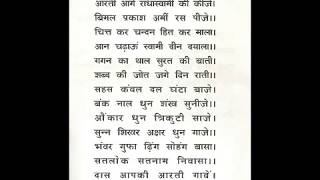 आरती आगे राधास्वामी की कीजे।
बिमल प्रकाश अमीं रस पीजे।।
चित्त कर चन्दन हित कर माला।
आन चढ़ाऊं स्वामी दीन दयाला।।
गगन का थाल सुरत की बाती।
शब्द की जोत जगे दिन राती।।
सहस कंवल दल घंटा बाजे।
बंक नाल धुन शंख सुनीजे।।
ओंकार धुन त्रिकुटी साजे।
सुन्न शिखर अक्षर धुन गाजे।।
भंवर गुफा ढ़िंग सोहंग बासा।
सतलोक सतनाम निवासा।।
दास आपकी आरती गावें